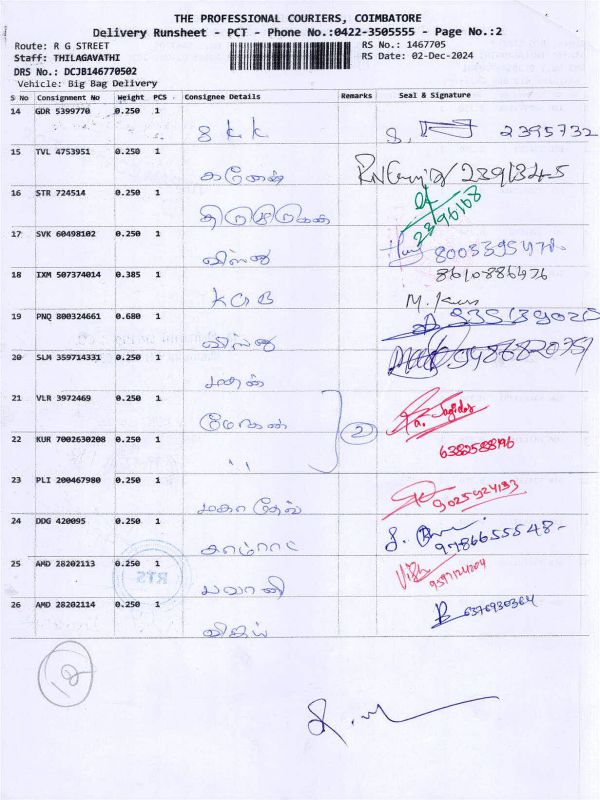 THE PROFESSIONAL COURIERS, COIMBATORE
Delivery Runsheet - PCT - Phone No.:0422-3505555 - Page No.:2
Route: R G STREET RS No.: 1467705
Staff: THILAGAVATHI RS Date: 02-Dec-2024
DRS No.: DCJB146770502
Vehicle: Big Bag Delivery
S No Consignment No Weight PCS Consignee Details Remarks Seal & Signature
14 GDR 5399770 0.250 1
S K K 2395732
15 TVL 4753951 0.250 1
கணேஷ்
16 STR 724514 0.250 1
2396168
17 SVK 60498102 0.250 1
18 IXM 507374014 0.385 1
8610886476
KGB M. Kum
19 PNQ 800324661 0.680 1
20 SLM 359714331 0.250 1
9486820751
21 VLR 3972469 0.250 1
மோகன் 2
22 KUR 7002630208 0.250 1
" 6382588196
23 PLI 200467980 0.250 1
மகாதேவ் 9025924133
24 DDG 420095 0.250 1
9786655548
25 AMD 28202113 0.250 1
RTS
பவானி
26 AMD 28202114 0.250 1
6376930364
விஜய்